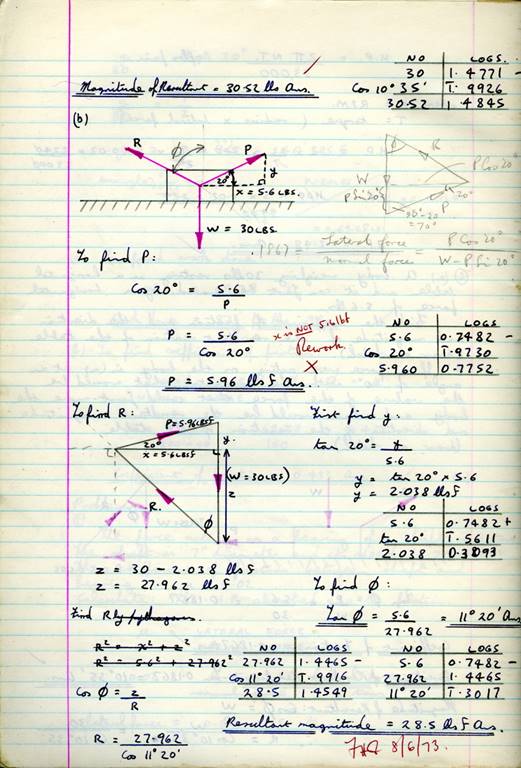 NO LOGS.
30 1.4771 -
Cos 10° 35' T.9926
30.52 1.4845
Magnitude of Resultant = 30.52 lbs Ans.
(b)
R ϕ P
20° y
x = 5.6 LBS.
W = 30 LBS
ϕ R
W P Cos 20°
P Sin 20° P 20°
90°-20
= 70°
.1867 = Lateral force = P Cos 20°
normal force W-P Sin 20°
To find P:
Cos 20° = 5.6
P
P = 5.6
Cos 20°
x is NOT 5.6 lbf
Rework.
X
P = 5.96 lbs f Ans.
NO LOGS
5.6 0.7482 -
Cos 20° T.9730
5.960 0.7752
To find R:
P = 5.96 LBSF
20° y
x = 5.6 LBSF
(W = 30 LBS)
z
R.
ϕ
First find y:
tan 20° = y
5.6
y = tan 20° x 5.6
y = 2.038 lbs f
NO LOGS
5.6 0.7482 +
tan 20° T.5611
2.038 0.3093
z = 30 - 2.038 lbs f
z = 27.962 lbs f
To find ϕ:
Tan ϕ = 5.6 = 11° 20' Ans
27.962
Find R by pythagoras.
R² = x² + z²
R² = 5.6² + 27.962²
NO LOGS
27.962 1.4465 -
Cos 11° 20' T.9916
28.5 1.4549
NO LOGS
5.6 0.7482 -
27.962 1.4465
11° 20' T.3017
Cos ϕ = z
R
Resultant magnitude = 28.5 lbs f Ans.
R = 27.962
Cos 11° 20'
8/6/73.